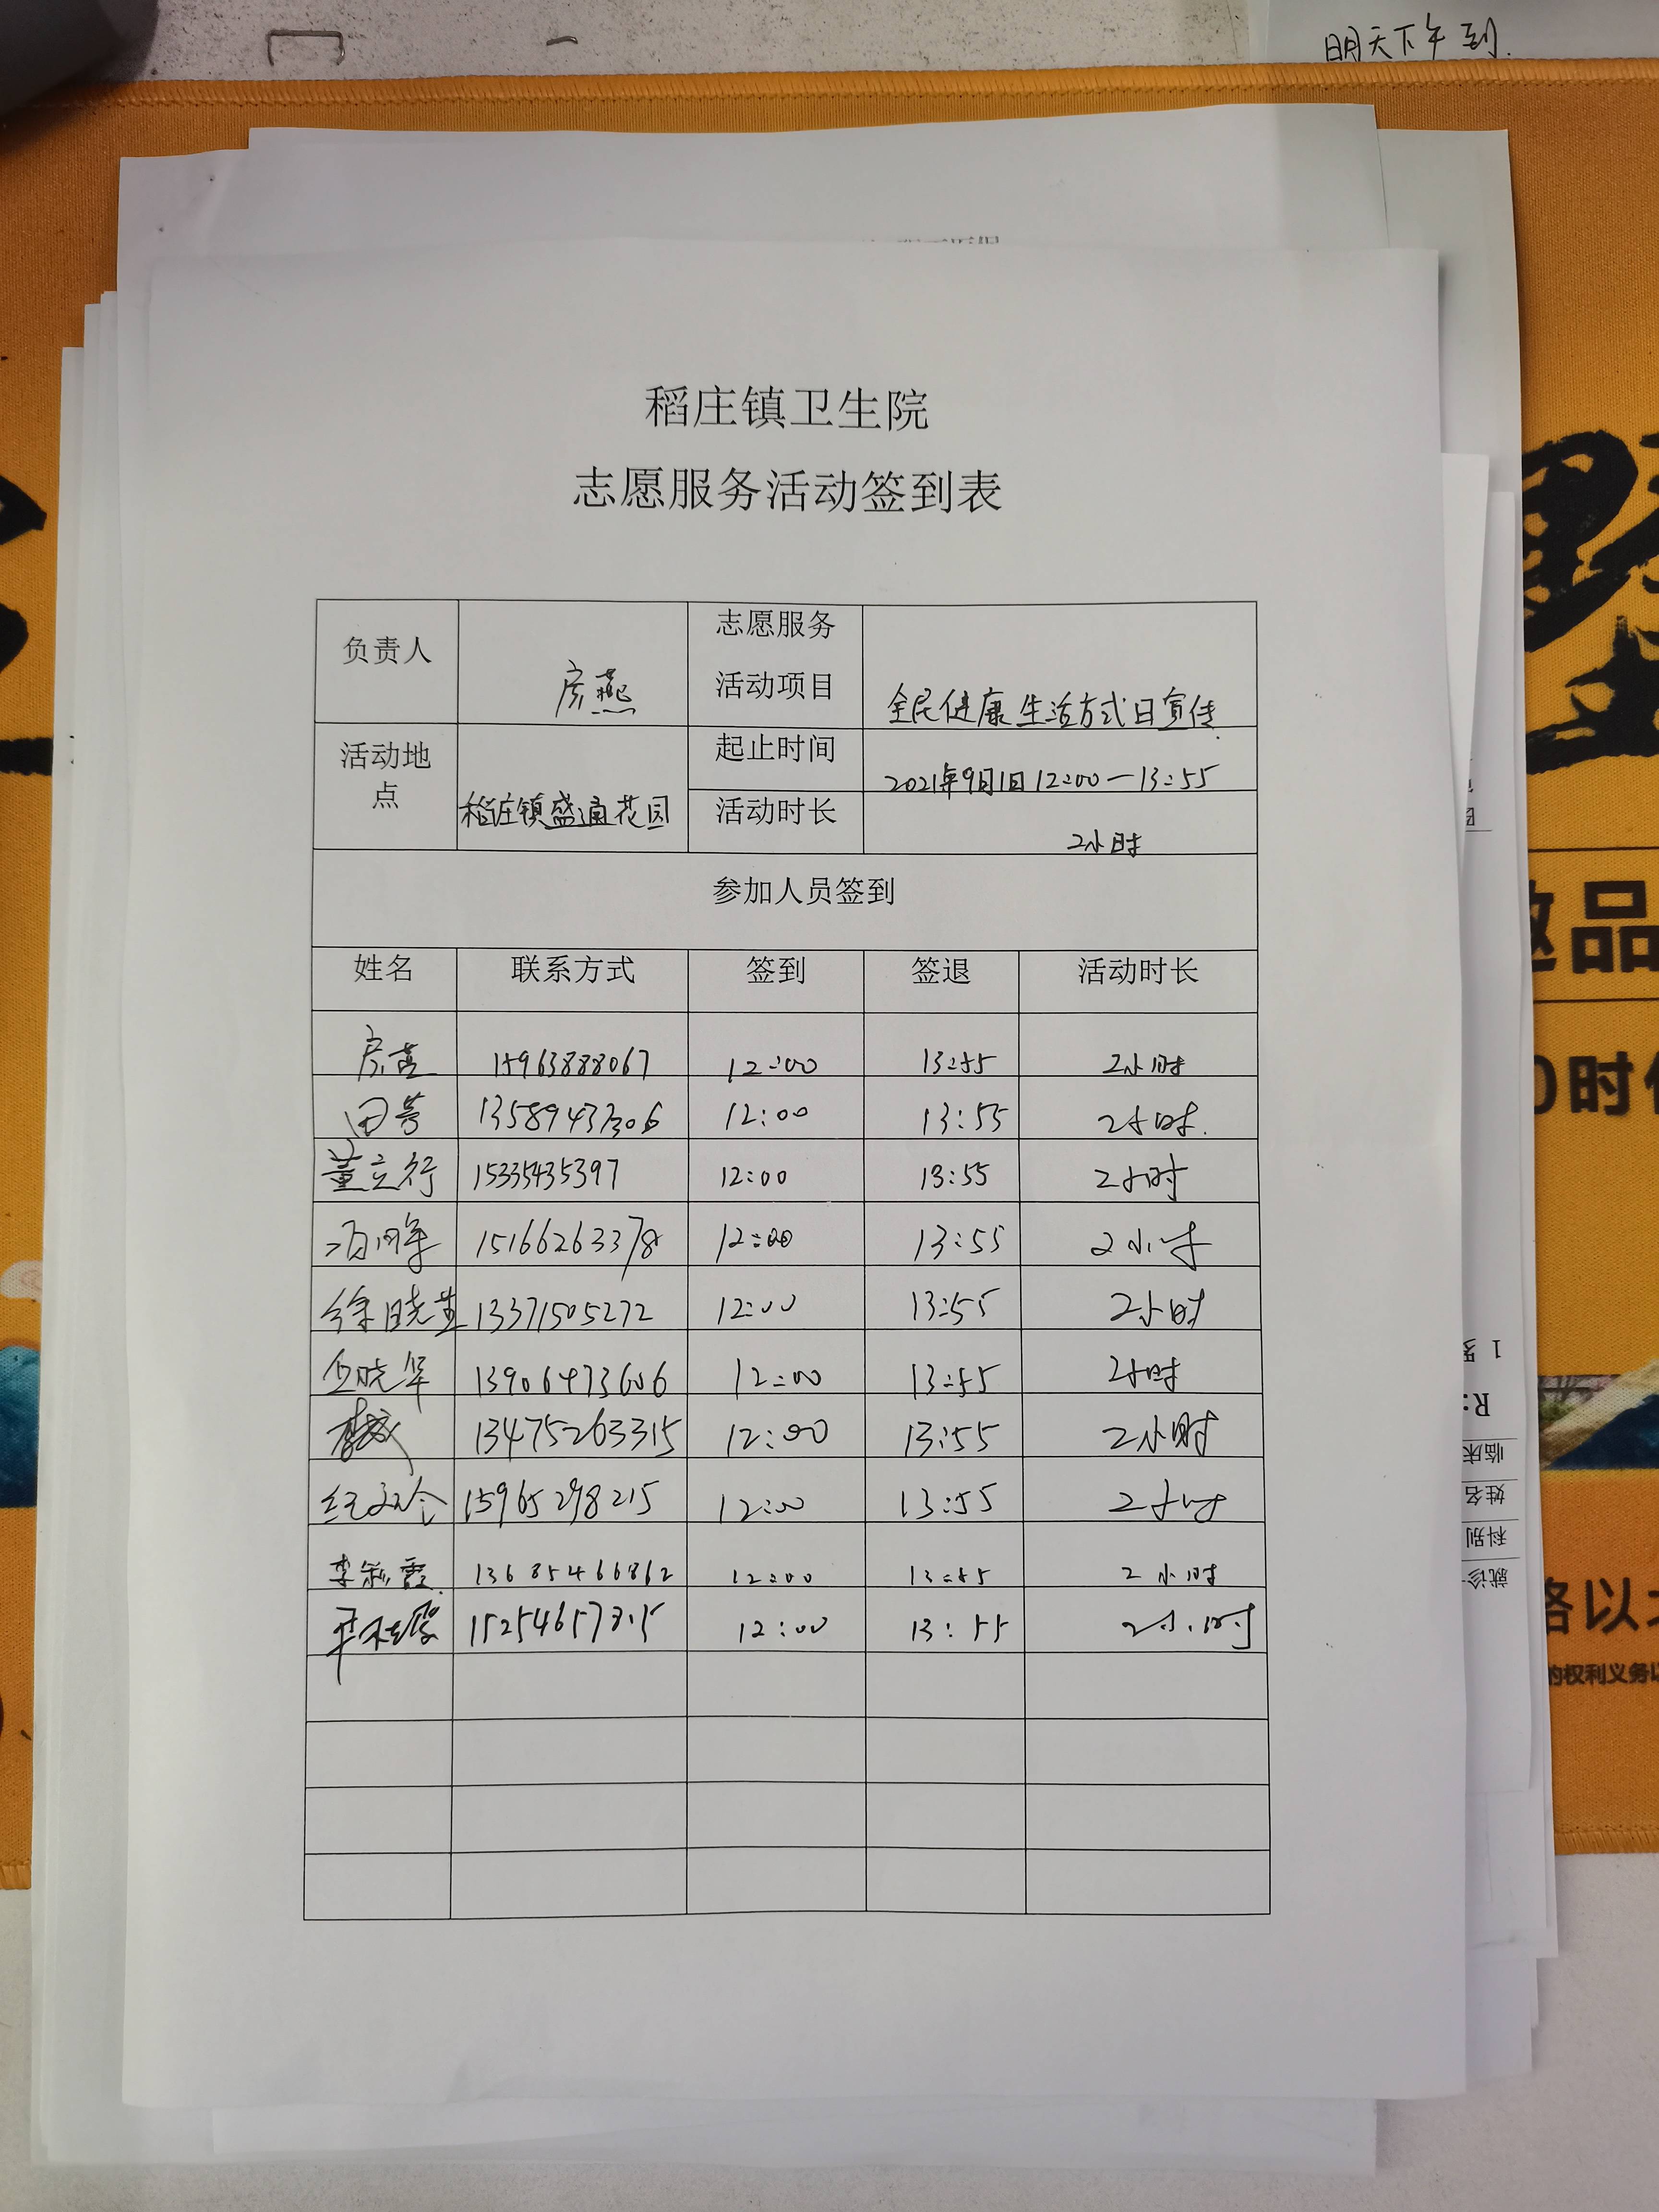 明天下午到.
稻庄镇卫生院
志愿服务活动签到表
负责人 房燕 志愿服务活动项目 全民健康生活方式日宣传
活动地点 稻庄镇盛通花园 起止时间 2021年9月1日12:00—13:55
活动时长 2小时
参加人员签到
姓名 联系方式 签到 签退 活动时长
房燕 15963888067 12:00 13:55 2小时
田芳 13589437306 12:00 13:55 2小时.
董立行 15335435397 12:00 13:55 2小时
15166263378 12:00 13:55 2小时
徐晓燕 13371505272 12:00 13:55 2小时
13906473606 12:00 13:55 2小时
13475263315 12:00 13:55 2小时
15965298215 12:00 13:55 2小时
李彩霞 13685466862 12:00 13:55 2小时
12:00 13:55 2小时
品
时
R:
临床
姓名
科别
就诊
格以
的权利义务以